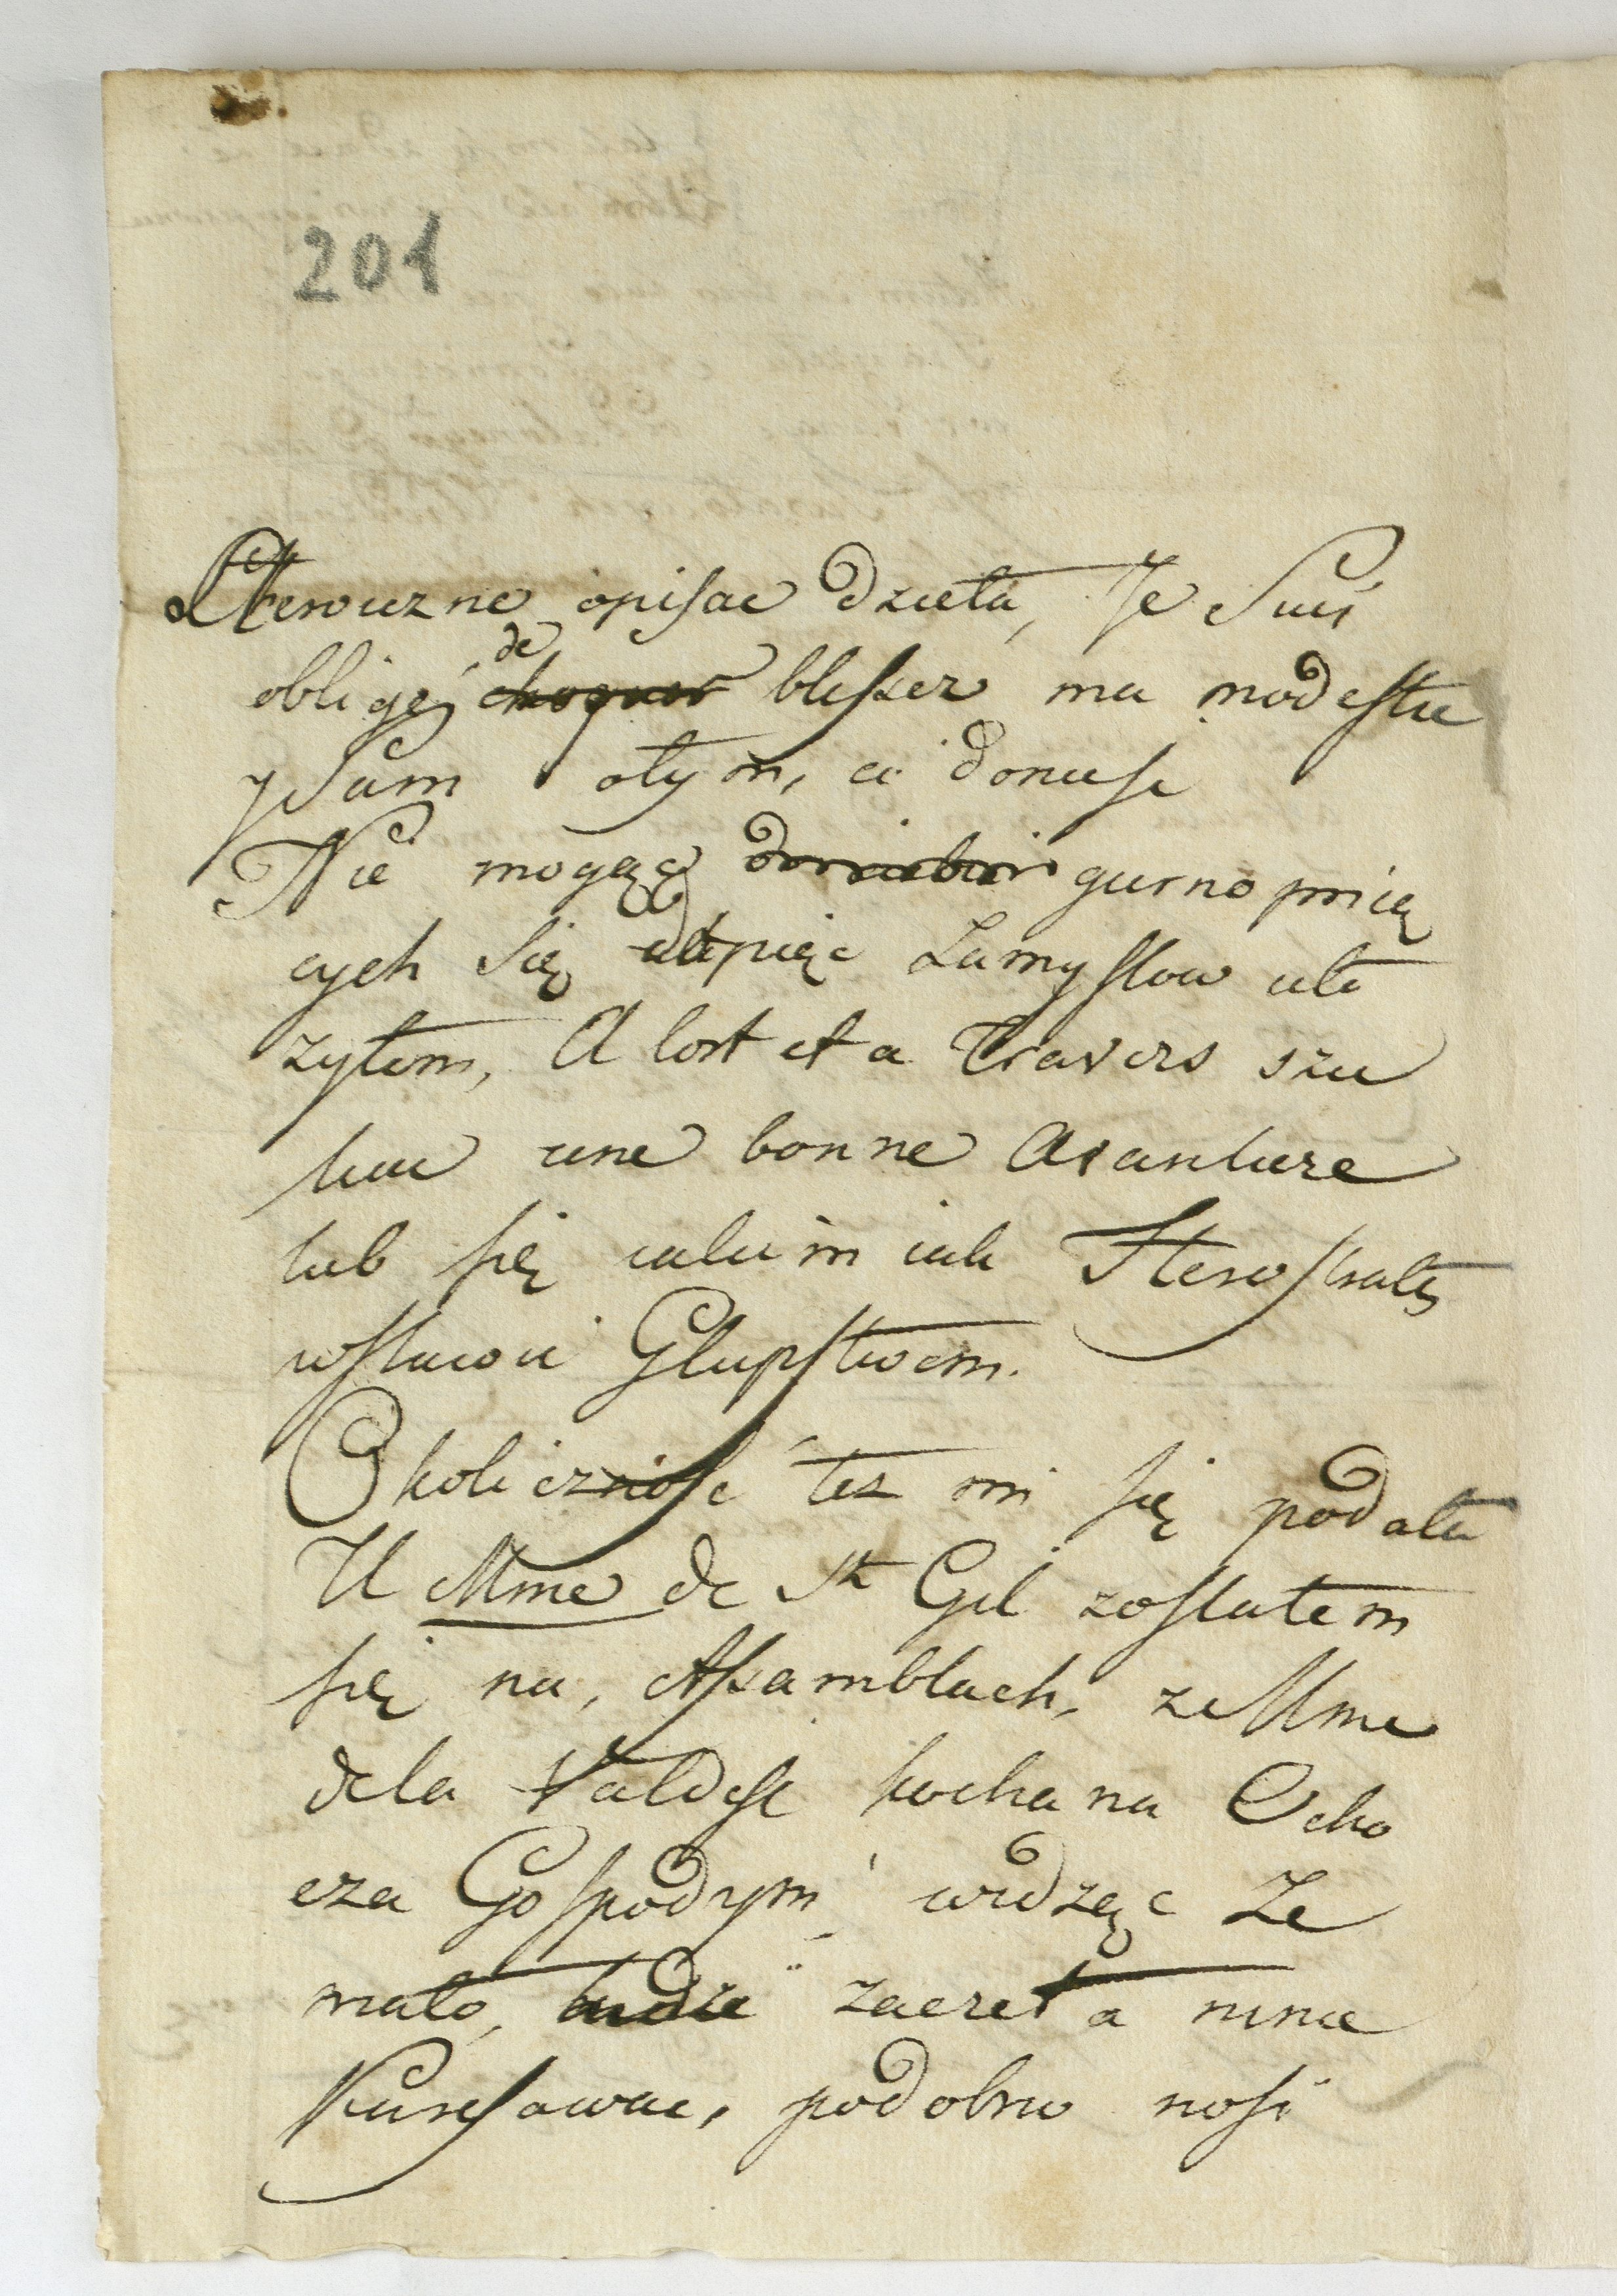 201
Heroiczne opisac dzieła, Je Suis
obligé, de blesser ma modestie
y Sam o tym, ci donieść
Nie mogąc gurno pnią
cych się dopiąc Zamysłow uło
żyłem, A tort et a Travers szu
kac une bonne Avanture
lub się całkim iak Herostrates
wsławic Głupstwem.
Okoliczność też mi się podała
U Mme de St Gil zostałem
się na, Assamblach, ze Mme
dela Valdese kochana Ocho
cza Gospodyni widząc że
mało, zaczeła mnie
Kursowac, podobno nosi